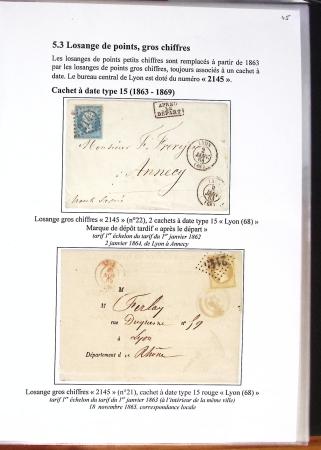 45
5.3 Losange de points, gros chiffres
Les losanges de points petits chiffres sont remplacés à partir de 1863
par les losanges de points gros chiffres, toujours associés à un cachet à
date. Le bureau central de Lyon est doté du numéro « 2145 ».
Cachet à date type 15 (1863 - 1869)
APRÈS
LE
DÉPART
LYON
Monsieur F. 
Annecy
Losange gros chiffres « 2145 » (n°22), 2 cachets à date type 15 « Lyon (68) »
Marque de dépôt tardif « après le départ »
tarif 1er échelon du tarif du 1er janvier 1862
2 janvier 1864, de Lyon à Annecy
M
M Ferlay
rue Duquesne n° 59
à Lyon
Département d e Rhône
Losange gros chiffres « 2145 » (n°21), cachet à date type 15 rouge « Lyon (68) »
tarif 1er échelon du tarif du 1er janvier 1863 (à l'intérieur de la même ville)
18 novembre 1863, correspondance locale